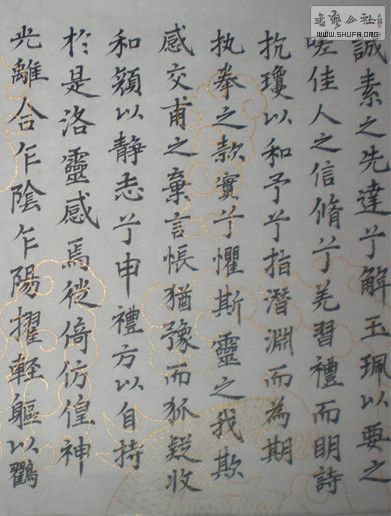 誠素之先達兮解玉珮以要之
嗟佳人之信脩兮羌習禮而明詩
抗瓊以和予兮指潛淵而為期
执拳之款實兮懼斯靈之我欺
感交甫之棄言悵猶豫而狐疑收
和顏以静志兮申禮方以自持
於是洛靈感焉徙倚仿偟神
光離合乍陰乍陽擢軽軀以鸖
書法公社
WWW.SHUFA.ORG